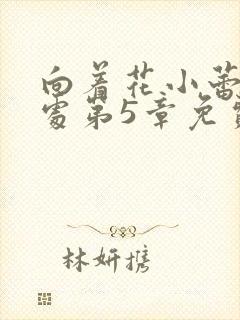 向着花小蕾
处第5章免费
林妍携